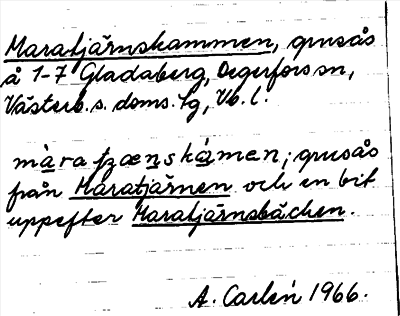 Maratjärnskammen, grusås
å 1-7 Gladaberg, Degerfors sn,
Västerb. s. doms. tg, Vb. l.
màra tzæn skámen; grusås
från Maratjärnen och en bit
uppefter Maratjärnsbäcken.
A. Carlén 1966.